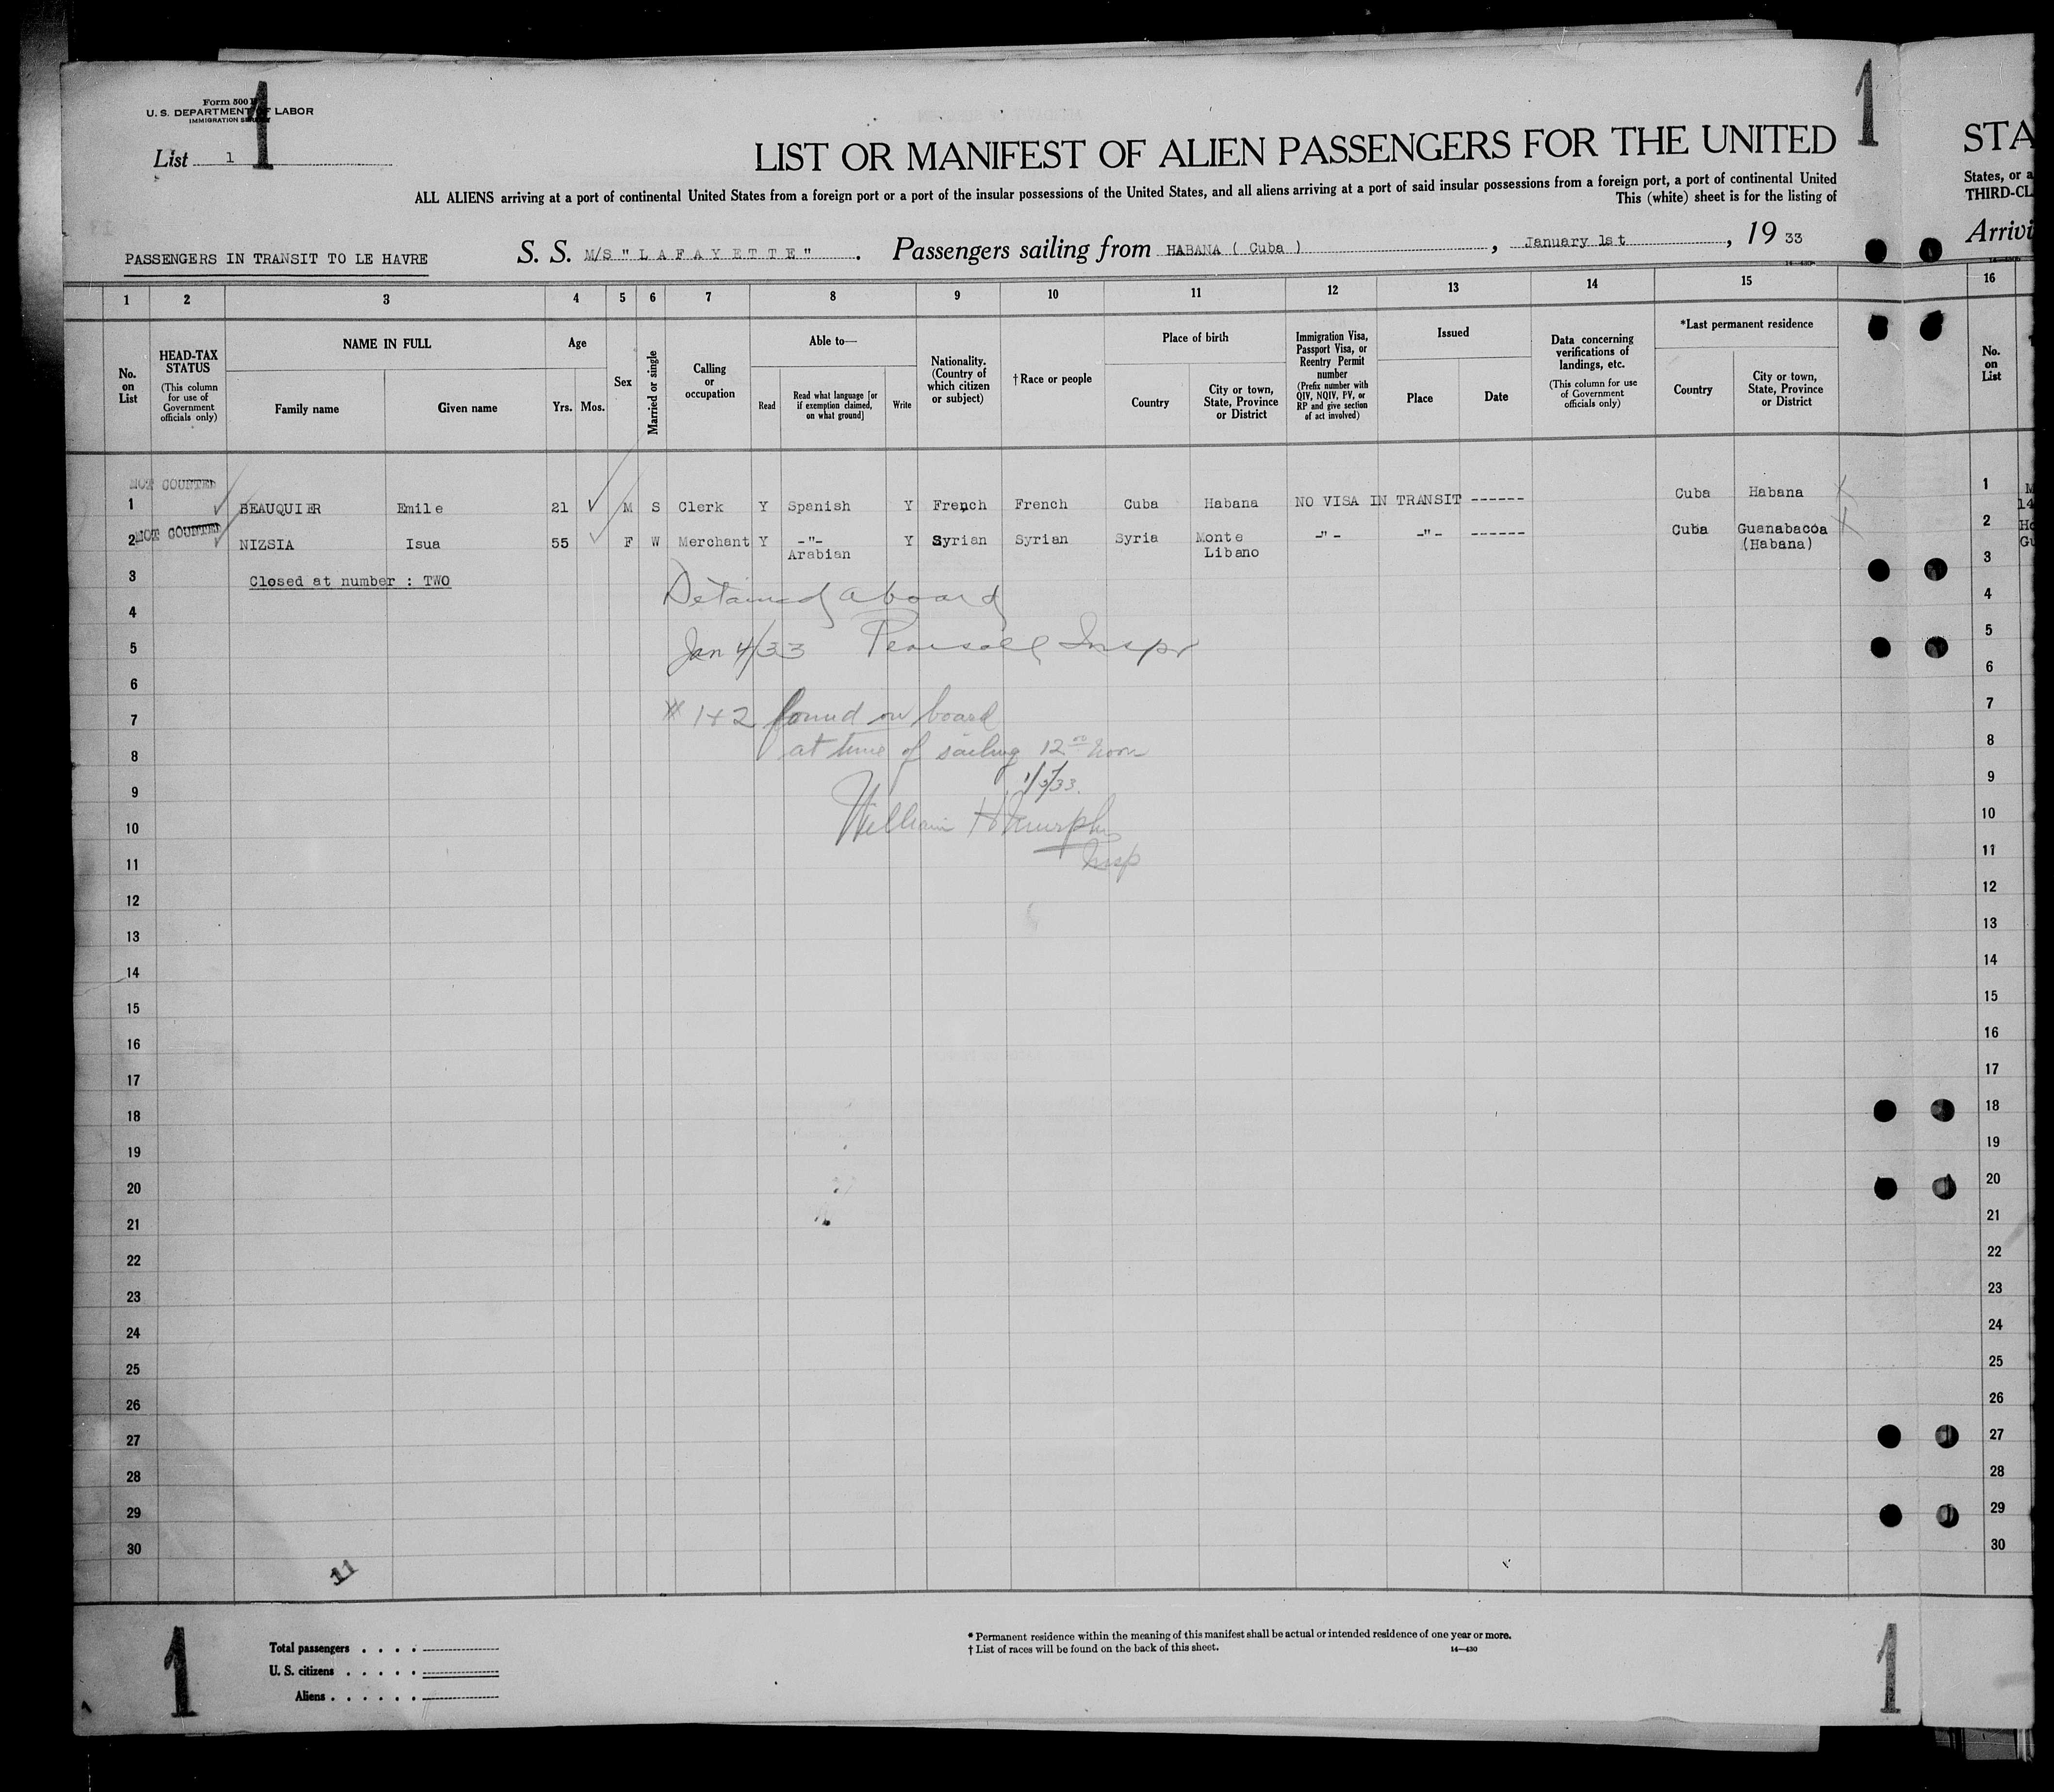 1
1
Form 500
U. S. DEPARTMENT OF LABOR
IMMIGRATION
List 1
LIST OR MANIFEST OF ALIEN PASSENGERS FOR THE UNITED
STA
ALL ALIENS arriving at a port of continental United States from a foreign port or a port of the insular possessions of the United States, and all aliens arriving at a port of said insular possessions from a foreign port, a port of continental United
States, or a
This (white) sheet is for the listing of
THIRD-CL
PASSENGERS IN TRANSIT TO LE HAVRE
S. S. M/S "LAFAYETTE". Passengers sailing from HABANA ( Cuba ), January 1st, 1933
Arrivi
1 2 3 4 5 6 7 8 9 10 11 12 13 14 15 16
No. on List
HEAD-TAX STATUS (This column for use of Government officials only)
NAME IN FULL
Family name
Given name
Age
Yrs.
Mos.
Sex
Married or single
Calling or occupation
Able to—
Read
Read what language [or if exemption claimed, on what ground]
Write
Nationality. (Country of which citizen or subject)
†Race or people
Place of birth
Country
City or town, State, Province or District
Immigration Visa, Passport Visa, or Reentry Permit number (Prefix number with QIV, NQIV, PV, or RP and give section of act involved)
Issued
Place
Date
Data concerning verifications of landings, etc. (This column for use of Government officials only)
*Last permanent residence
Country
City or town, State, Province or District
No. on List
NOT COUNTED
1 BEAUQUIER Emile 21 M S Clerk Y Spanish Y French French Cuba Habana NO VISA IN TRANSIT ------ Cuba Habana 1
NOT COUNTED
2 NIZSIA Isua 55 F W Merchant Y -"- Y Syrian Syrian Syria Monte -"- -"- ------ Cuba Guanabacoa 2
Arabian Libano (Habana)
3 Closed at number : TWO 3
Detained aboard
4 4
Jan 4/33 Pearsall Inspr
5 5
6 6
# 1+2 found on board
7 7
at time of sailing 12 noon
8 8
1/5/33.
9 9
William H Murphy
10 10
Insp
11 11
12 12
13 13
14 14
15 15
16 16
17 17
18 18
19 19
20 20
21 21
22 22
23 23
24 24
25 25
26 26
27 27
28 28
29 29
30 30
11
Total passengers . . . .
U. S. citizens . . . . .
Aliens . . . . . .
* Permanent residence within the meaning of this manifest shall be actual or intended residence of one year or more.
† List of races will be found on the back of this sheet.
14—430
1
1